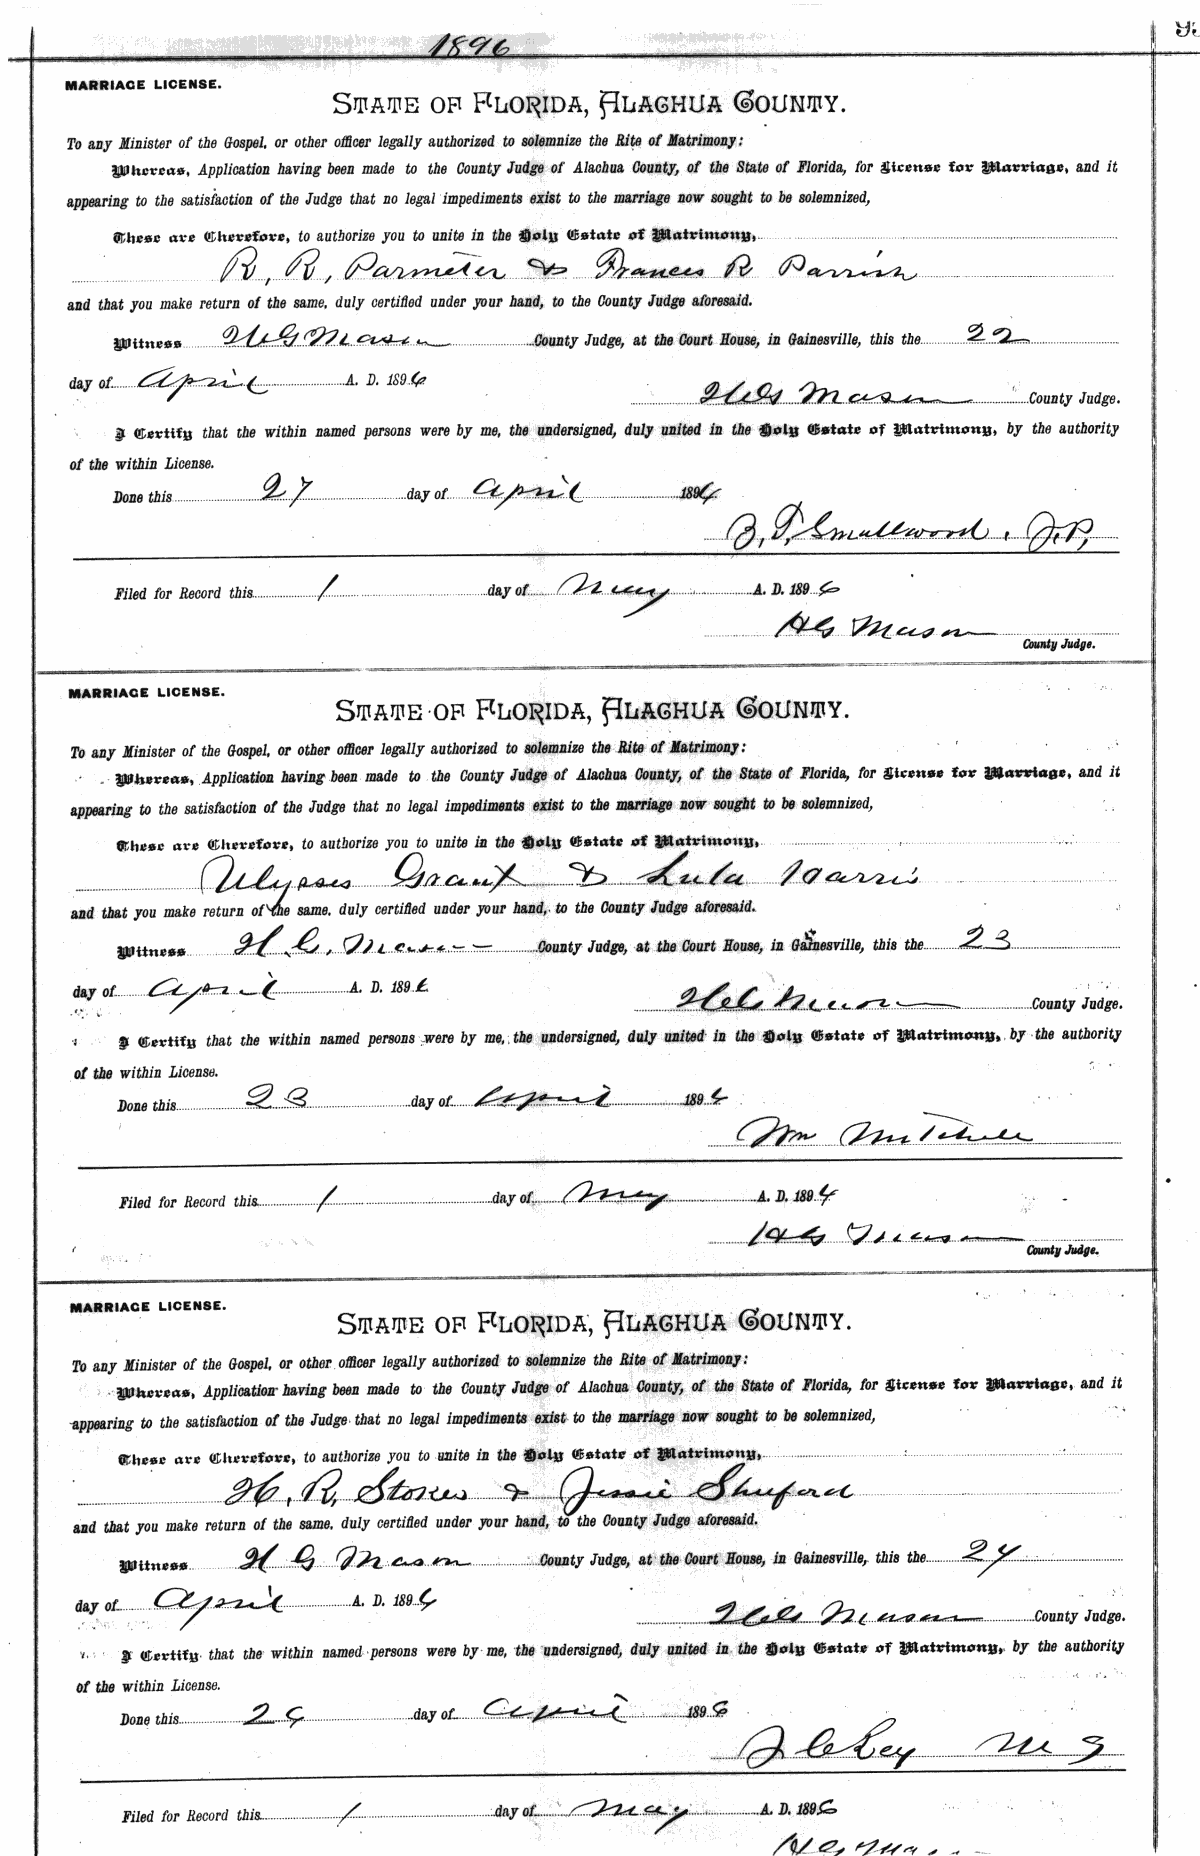 1896
MARRIAGE LICENSE.
STATE OF FLORIDA, ALACHUA COUNTY.
To any Minister of the Gospel, or other officer legally authorized to solemnize the Rite of Matrimony:
Whereas, Application having been made to the County Judge of Alachua County, of the State of Florida, for License for Marriage, and it
appearing to the satisfaction of the Judge that no legal impediments exist to the marriage now sought to be solemnized,
These are Therefore, to authorize you to unite in the Holy Estate of Matrimony,
R, R, Parmeter & Frances R Parrish
and that you make return of the same, duly certified under your hand, to the County Judge aforesaid.
Witness H G Mason County Judge, at the Court House, in Gainesville, this the 22
day of April A. D. 1896
H G Mason County Judge.
I Certify that the within named persons were by me, the undersigned, duly united in the Holy Estate of Matrimony, by the authority
of the within License.
Done this 27 day of April 1896
B. T. Smallwood, J.P,
Filed for Record this 1 day of May A. D. 1896
H G Mason
County Judge.
MARRIAGE LICENSE.
STATE OF FLORIDA, ALACHUA COUNTY.
To any Minister of the Gospel, or other officer legally authorized to solemnize the Rite of Matrimony:
Whereas, Application having been made to the County Judge of Alachua County, of the State of Florida, for License for Marriage, and it
appearing to the satisfaction of the Judge that no legal impediments exist to the marriage now sought to be solemnized,
These are Therefore, to authorize you to unite in the Holy Estate of Matrimony,
Ulysses Grant & Lula Harris
and that you make return of the same, duly certified under your hand, to the County Judge aforesaid.
Witness H. G. Mason County Judge, at the Court House, in Gainesville, this the 23
day of April A. D. 1896
H G Mason County Judge.
I Certify that the within named persons were by me, the undersigned, duly united in the Holy Estate of Matrimony, by the authority
of the within License.
Done this 23 day of April 1896
Wm Mitchell
Filed for Record this 1 day of May A. D. 1896
H G Mason
County Judge.
MARRIAGE LICENSE.
STATE OF FLORIDA, ALACHUA COUNTY.
To any Minister of the Gospel, or other officer legally authorized to solemnize the Rite of Matrimony:
Whereas, Application having been made to the County Judge of Alachua County, of the State of Florida, for License for Marriage, and it
appearing to the satisfaction of the Judge that no legal impediments exist to the marriage now sought to be solemnized,
These are Therefore, to authorize you to unite in the Holy Estate of Matrimony,
H. R. Stokes & Jessie Shuford
and that you make return of the same, duly certified under your hand, to the County Judge aforesaid.
Witness H G Mason County Judge, at the Court House, in Gainesville, this the 24
day of April A. D. 1896
H G Mason County Judge.
I Certify that the within named persons were by me, the undersigned, duly united in the Holy Estate of Matrimony, by the authority
of the within License.
Done this 26 day of April 1896
J C Ley M G
Filed for Record this 1 day of May A. D. 1896
H G Mason